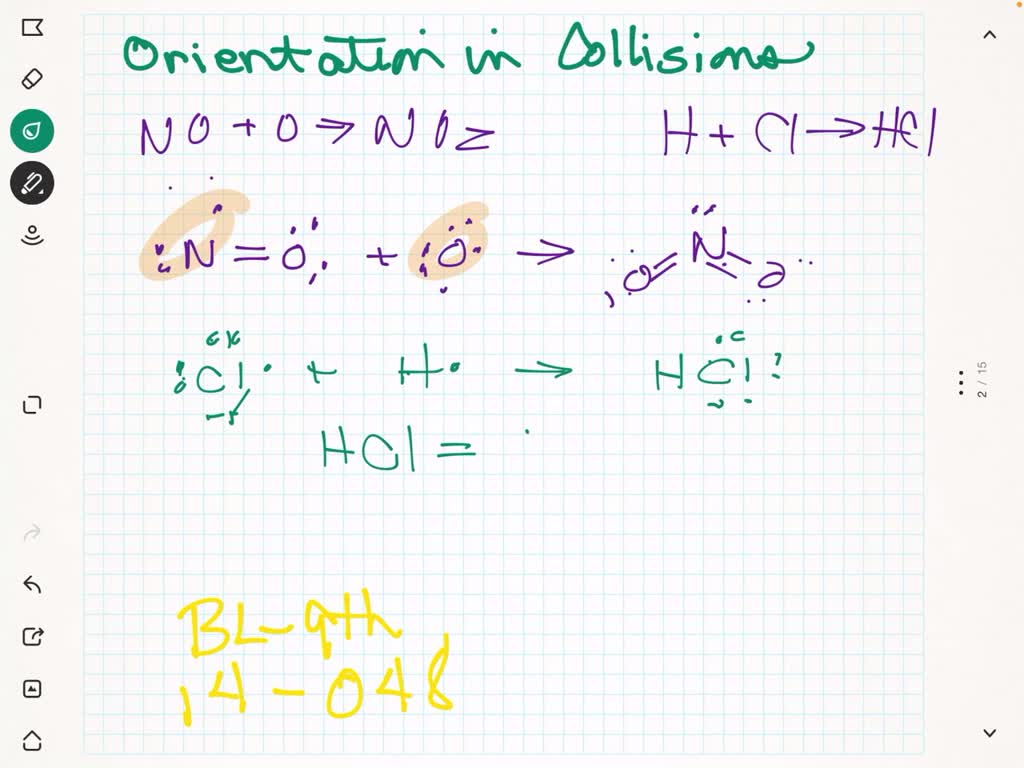 Orientation in Collisions
NO + O → NO2 H + Cl → HCl
:N = O + :O: → O = N = O
:Cl· + H· → HCl:
HCl =
BL-9th
14-048
2 / 15